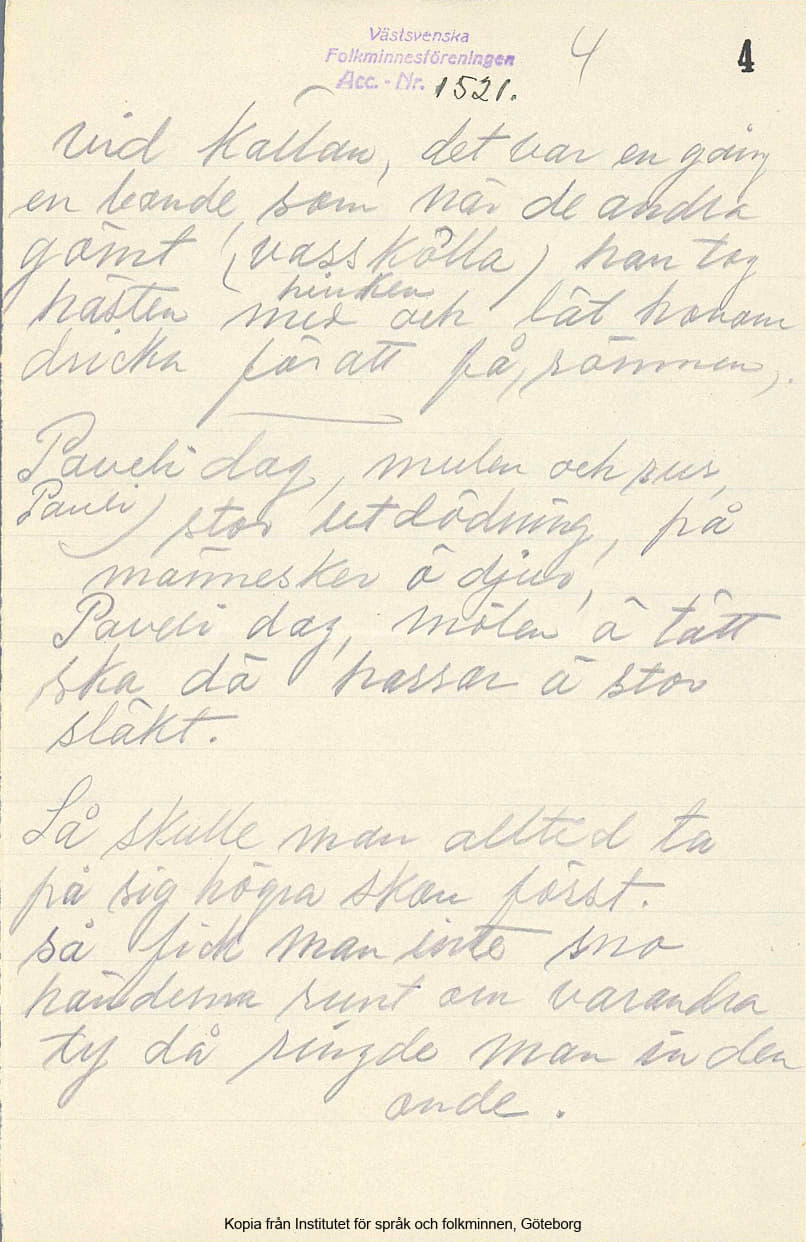 Västsvenska
Folkminnesföreningen
Acc. - Nr. 1521.
4
4
vid källan, det var en gång
en bonde, som när de andra
gömt (vasskölla) han tog
hinken
hästen med och lät honom
dricka för att få, römmen,.
Paveli dag, mulen och sur,
Pauli) stor utdödning, på
männesker å djur,
Paveli dag, mölen å tätt
ska då hassar å stor
släkt.
Så skulle man alltid ta
på sig högra skon först.
så fick man inte sno
händerna runt om varandra
ty då ringde man in den
onde.
Kopia från Institutet för språk och folkminnen, Göteborg